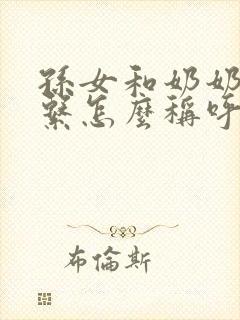 孫女和奶奶
繫怎麼稱呼
布倫斯